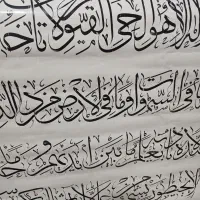 لا هو الحي القيوم لا تاخذ
فى السموات وما فى الارض من ذا الذ
لا باذنه يعلم ما بين ايديهم وما
يحيطون بشىء من علمه